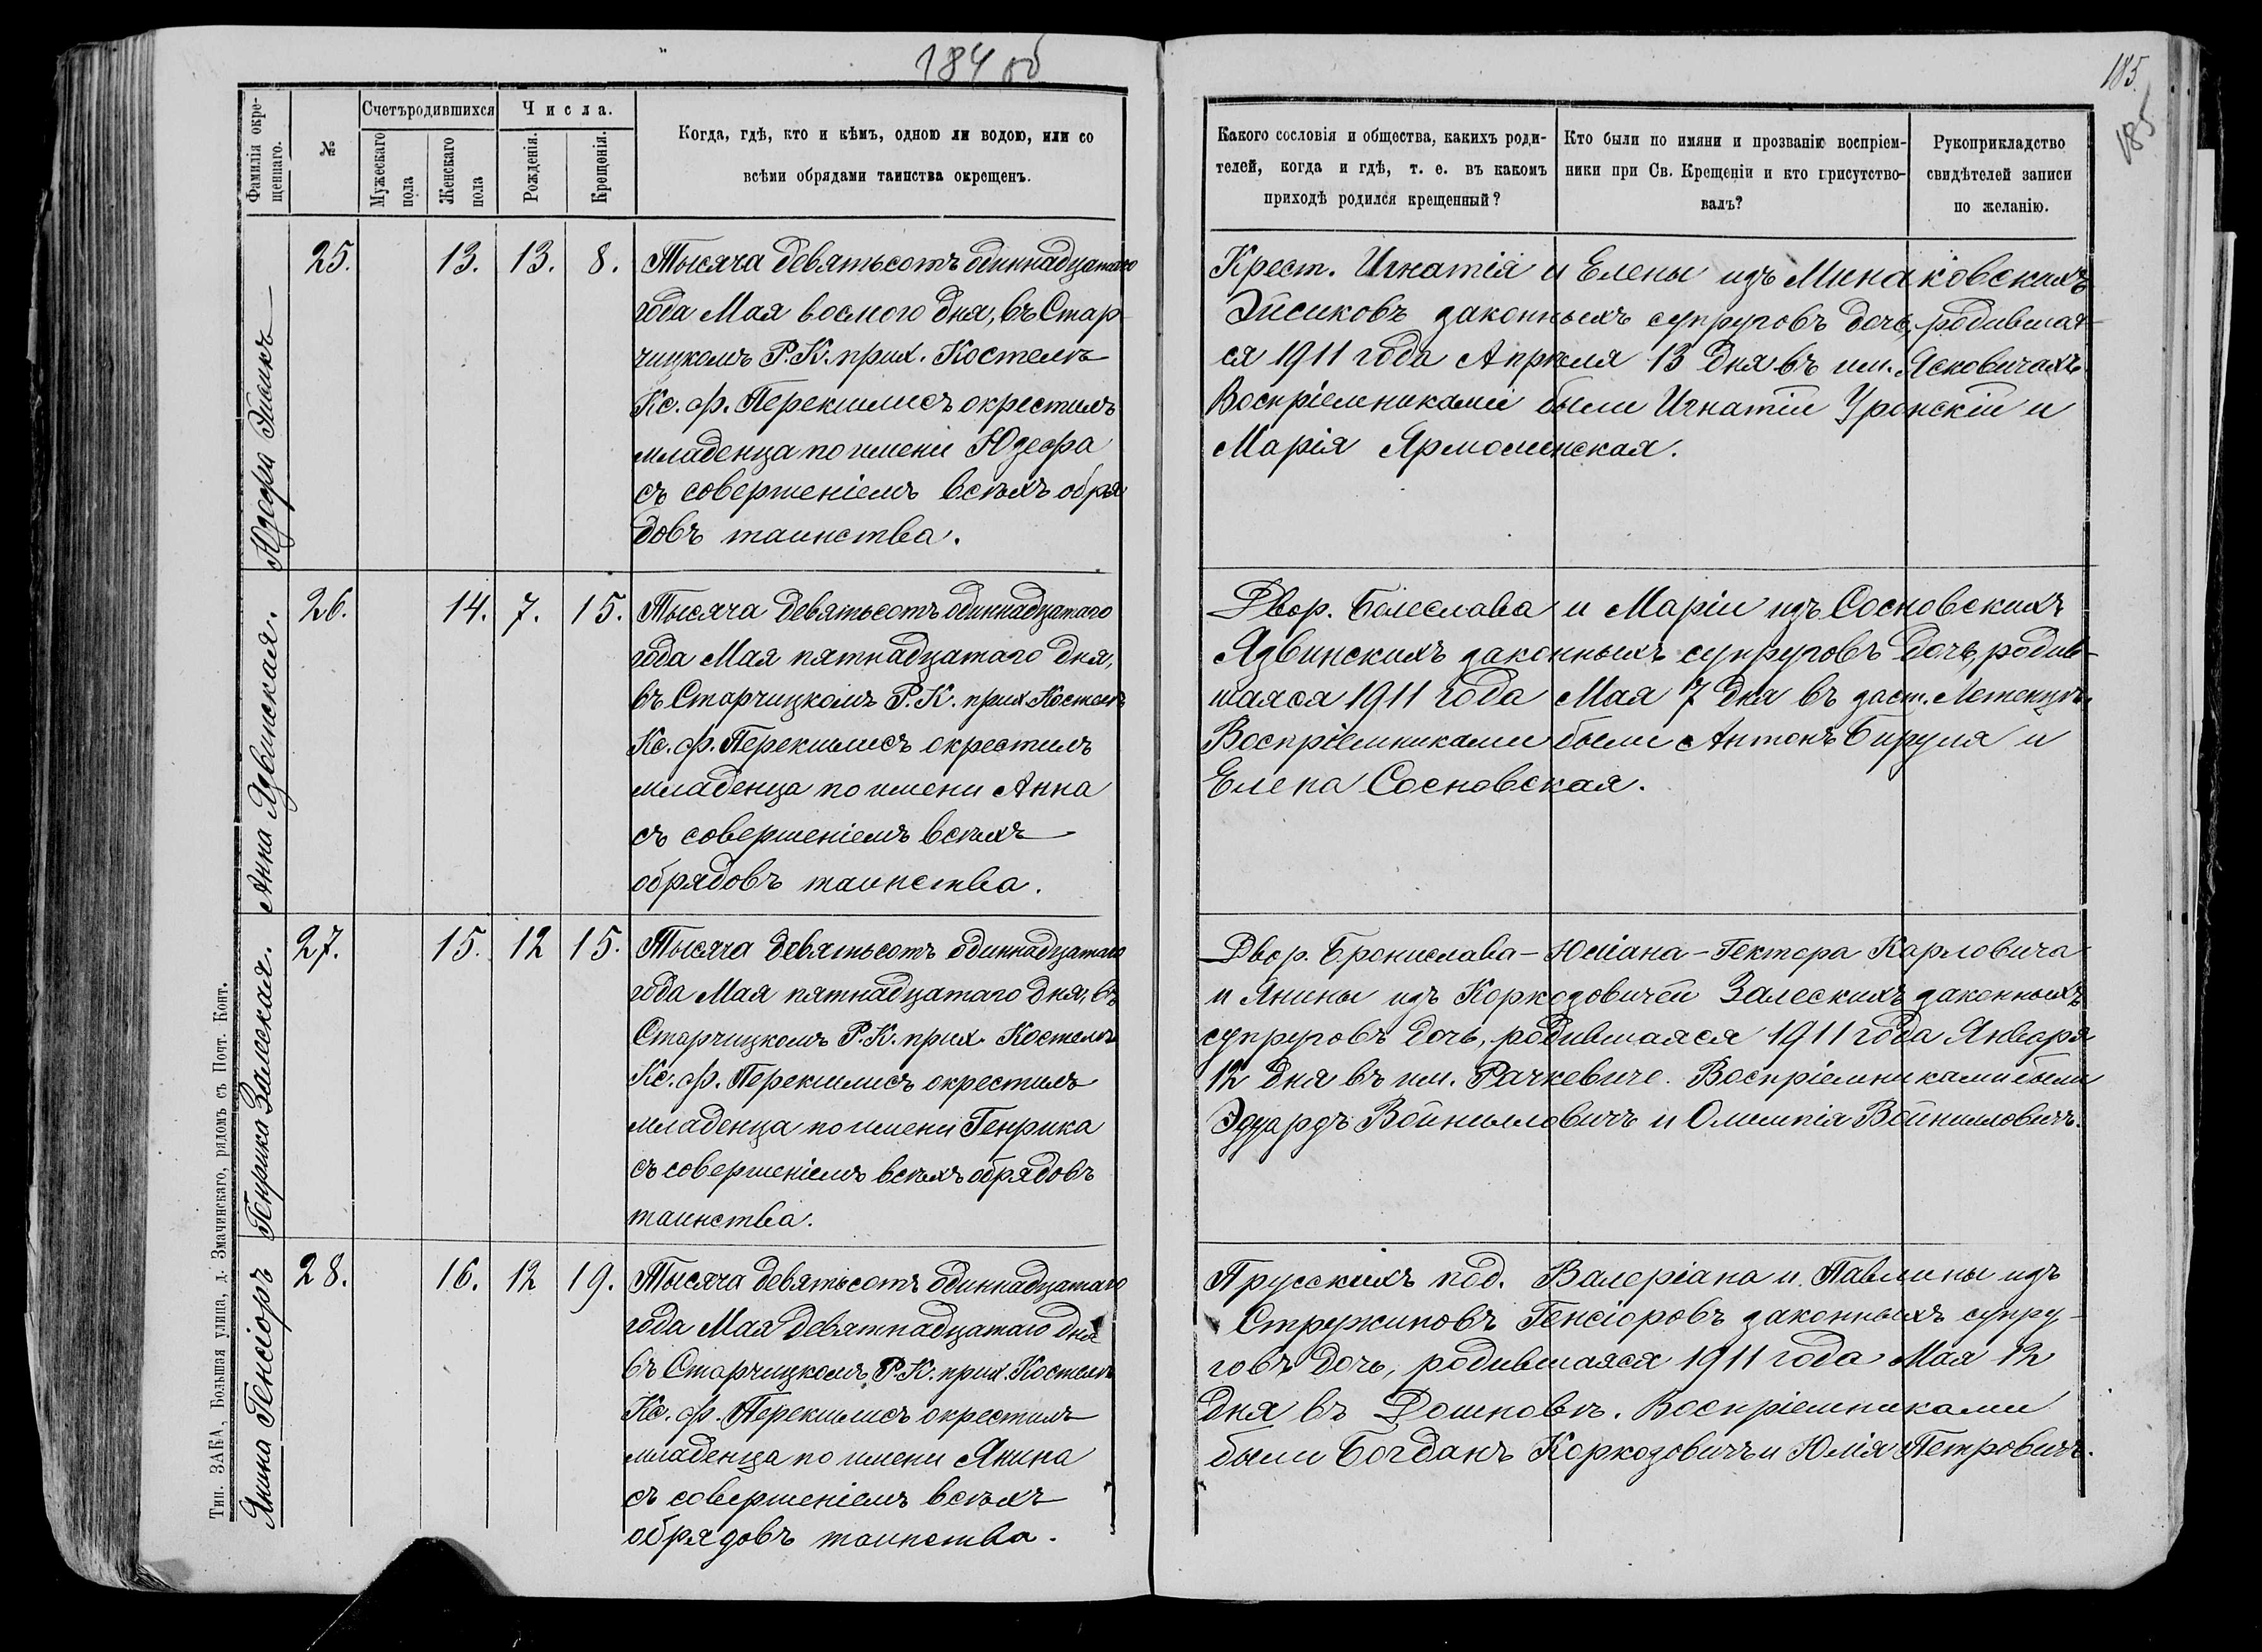 184 об
185.
185
Фамилія окре-
щеннаго.
№
Счетъ родившихся
Мужескаго
пола
Женскаго
пола
Числа.
Рожденія.
Крещенія.
Когда, гдѣ, кто и кѣмъ, одною ли водою, или со
всѣми обрядами таинства окрещенъ.
Какого сословія и общества, какихъ роди-
телей, когда и гдѣ, т. е. въ какомъ
приходѣ родился крещенный?
Кто были по имяни и прозванію воспріем-
ники при Св. Крещеніи и кто присутство-
валъ?
Рукоприкладство
свидѣтелей записи
по желанію.
Юзефа Эйсикъ
25. 13. 13. 8.
Тысяча девятьсотъ одиннадцатаго
года Мая восмого дня, въ Стар
чицкомъ Р.К. прих. Костелѣ
Кс. ф. Перекшлисъ окрестилъ
младенца по имени Юзефа
съ совершеніемъ всѣхъ обря
довъ таинства.
Крест. Игнатія и Елены изъ Минаковскихъ
Эйсиковъ законныхъ супруговъ дочь, родившая-
ся 1911 года Апрѣля 13 дня въ им. Ясковичахъ.
Воспріемниками были Игнатій Уронскій и
Марія Ярмолинская.
Анна Язвинская.
26. 14. 7. 15.
Тысяча девятьсотъ одиннадцатаго
года Мая пятнадцатаго дня,
въ Старчицкомъ Р.К. прих. Костелѣ
Кс. ф. Перекшлисъ окрестилъ
младенца по имени Анна
съ совершеніемъ всѣхъ
обрядовъ таинства.
Двор. Болеслава и Маріи изъ Сосновскихъ
Язвинскихъ законныхъ супруговъ дочь, родив-
шаяся 1911 года Мая 7 дня въ заст. Летенцѣ.
Воспріемниками были Антонъ Бируля и
Елена Сосновская.
Генрика Залеская.
27. 15. 12 15.
Тысяча девятьсотъ одиннадцатаго
года Мая пятнадцатаго дня, въ
Старчицкомъ Р.К. прих. Костелѣ
Кс. ф. Перекшлисъ окрестилъ
младенца по имени Генрика
съ совершеніемъ всѣхъ обрядовъ
таинства.
Двор. Бронислава-Юліана-Гектора Карловича
и Янины изъ Коркозовичей Залескихъ законныхъ
супруговъ дочь, родившаяся 1911 года Января
12 дня въ им. Рачкевиче. Воспріемниками были
Эдуардъ Войнилловичъ и Олимпія Войнилловичъ.
Янина Генсіоръ
28. 16. 12 19.
Тысяча девятьсотъ одиннадцатаго
года Мая девятнадцатаго дня
въ Старчицкомъ Р.К. прих. Костелѣ
Кс. ф. Перекшлисъ окрестилъ
младенца по имени Янина
съ совершеніемъ всѣхъ
обрядовъ таинства.
Прусскихъ под. Валеріана и Павлины изъ
Стружиновъ Генсіоровъ законныхъ супру-
говъ дочь, родившаяся 1911 года Мая 12
дня въ Дошновѣ. Воспріемниками
были Богданъ Коркозовичъ и Юлія Петровичъ.
Тип. ЗАКА, Большая улица, д. Змачинскаго, рядомъ съ Почт. Конт.